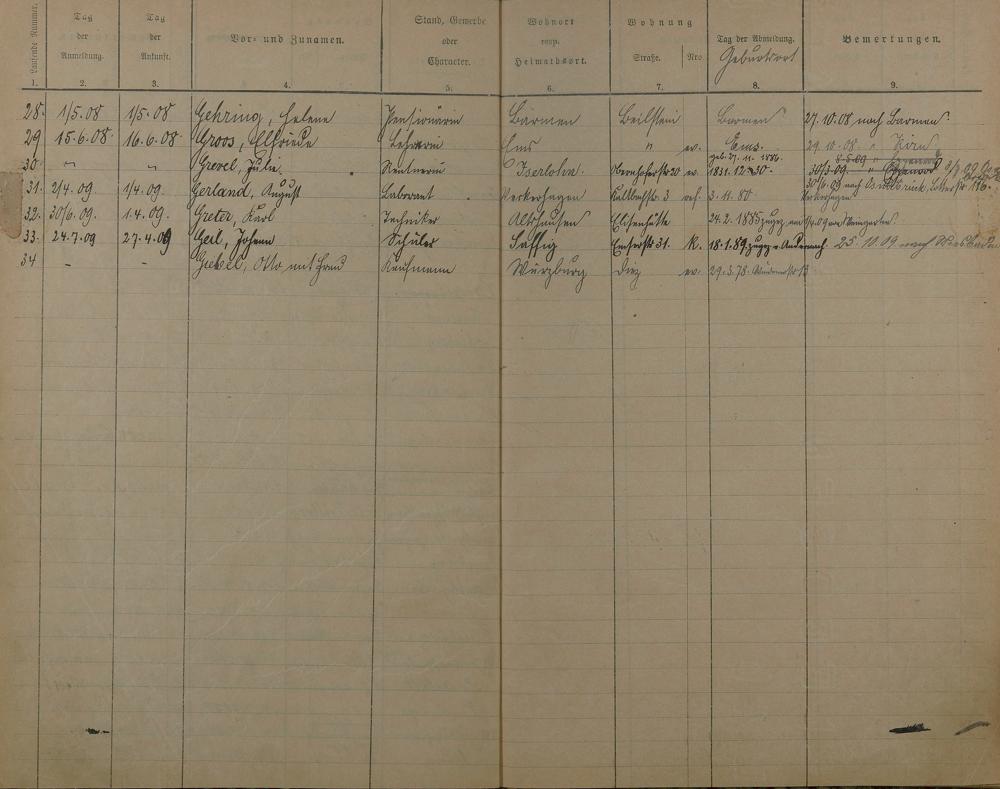 Laufende Nummer. Tag der Anmeldung. Tag der Ankunft. Vor- und Zunamen. Stand, Gewerbe oder Character. Wohnort resp. Heimathsort. Wohnung Straße. Nro. Tag der Abmeldung. Geburtsort Bemerkungen.
1. 2. 3. 4. 5. 6. 7. 8. 9.
28. 1/5.08 1/5.08 Gehring, Helene Pensionärin Barmen Beilstein Barmen 27.10.08 nach Barmen
29 15.6.08 16.6.08 Groos, Elfriede Lehrerin Ems " ev. Ems. geb. 27.11.1886. 29.10.08 " Kirn
8.5.09 "
30 " " Grevel, Julie. Rentnerin Iserlohn. 20 ev. 1831.12. 30. 30/3.09.
31. 2/4.09. 1/4.09. Gerland, August Laborant Veckerhagen Kaltbachstr. 3 ref. 3.11.80 Veckerhagen 30/6.09 nach Osnabrück,
32. 30/6.09. 1.4.09. Greter, Karl Techniker Altshausen Elisenhütte 24.2.1885 Weingarten
33. 24.7.09 27.4.09 Geil, Johann Schüler Saffig Emserstr 31. K. 18.1.89. zugez. v. Andernach 25.10.09 nach Wiesbaden
34 - - Giebel, Otto mit Frau Kaufmann Würzburg Diez ev. 29.3.78.